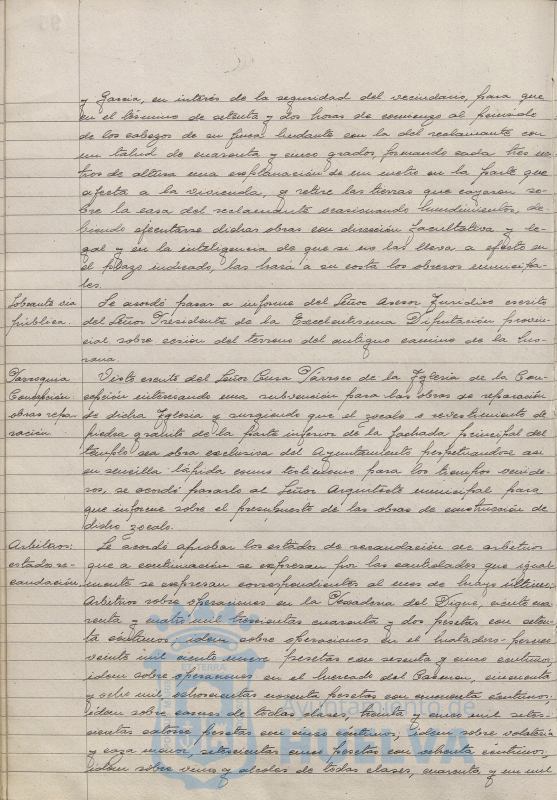 y Garcia, en interés de la seguridad del vecindario, para que
en el término de setenta y dos horas de comienzo al
de los cabezos de su finca lindante con la del reclamante con
un talud de cuarenta y cinco grados formando cada tres me-
tros de altura una explanación de un metro en la parte que
afecta a la vivienda, y retire las tierras que cayeron so-
bre la casa del reclamante ocasionando hundimientos, de-
biendo efectuarse dichas obras con dirección facultativa y le-
gal y en la inteligencia de que si no las lleva a efecto en
el plazo indicado, las hará a su costa los obreros municipa-
les.
Sobrante via
pública
Se acordó pasar a informe del Señor Asesor Juridico escrito
del Señor Presidente de la Excelentisima Diputación provin-
cial sobre cesión del terreno del antiguo camino de la
Parroquia
Concepción:
obras repa-
ración
Visto escrito del Señor Cura Párroco de la Iglesia de la Con-
cepción interesando una subvención para las obras de reparación
de dicha Iglesia y surgiendo que el zocalo o revestimiento de
piedra granito de la parte inferior de la fachada principal del
templo sea obra exclusiva del Ayuntamiento perpetuandose asi
en sencilla lápida como testimonio para los tiempos venide-
ros, se acordó pasarlo al Señor Arquitecto municipal para
que informe sobre el presupuesto de las obras de construcción de
dicho zocalo.
Arbitrios:
estados re-
caudación
Se acordó aprobar los estados de recaudación de arbitrios
que a continuación se expresan por las cantidades que igual
mente se expresan correspondientes al mes de Mayo último:
Arbitrios sobre operaciones en la Pescaderia del Dique, ciento cua-
renta y cuatro mil trescientas cuarenta y dos pesetas con seten-
ta céntimos, idem sobre operaciones en el Matadero
veinte mil ciento nueve pesetas con sesenta y cinco centimos,
idem sobre operaciones en el Mercado del Carmen, cincuenta
y siete mil ochocientas noventa pesetas con cincuenta centimos;
idem sobre carnes de todas clases, treinta y cinco mil sete-
cientas catorce pesetas con cinco centimos, idem sobre volateria
y caza menor, setecientas cinco pesetas con ochenta centimos,
idem sobre vinos y alcoles de todas clases, cuarenta y un mil
Ayuntamiento de
HUELVA